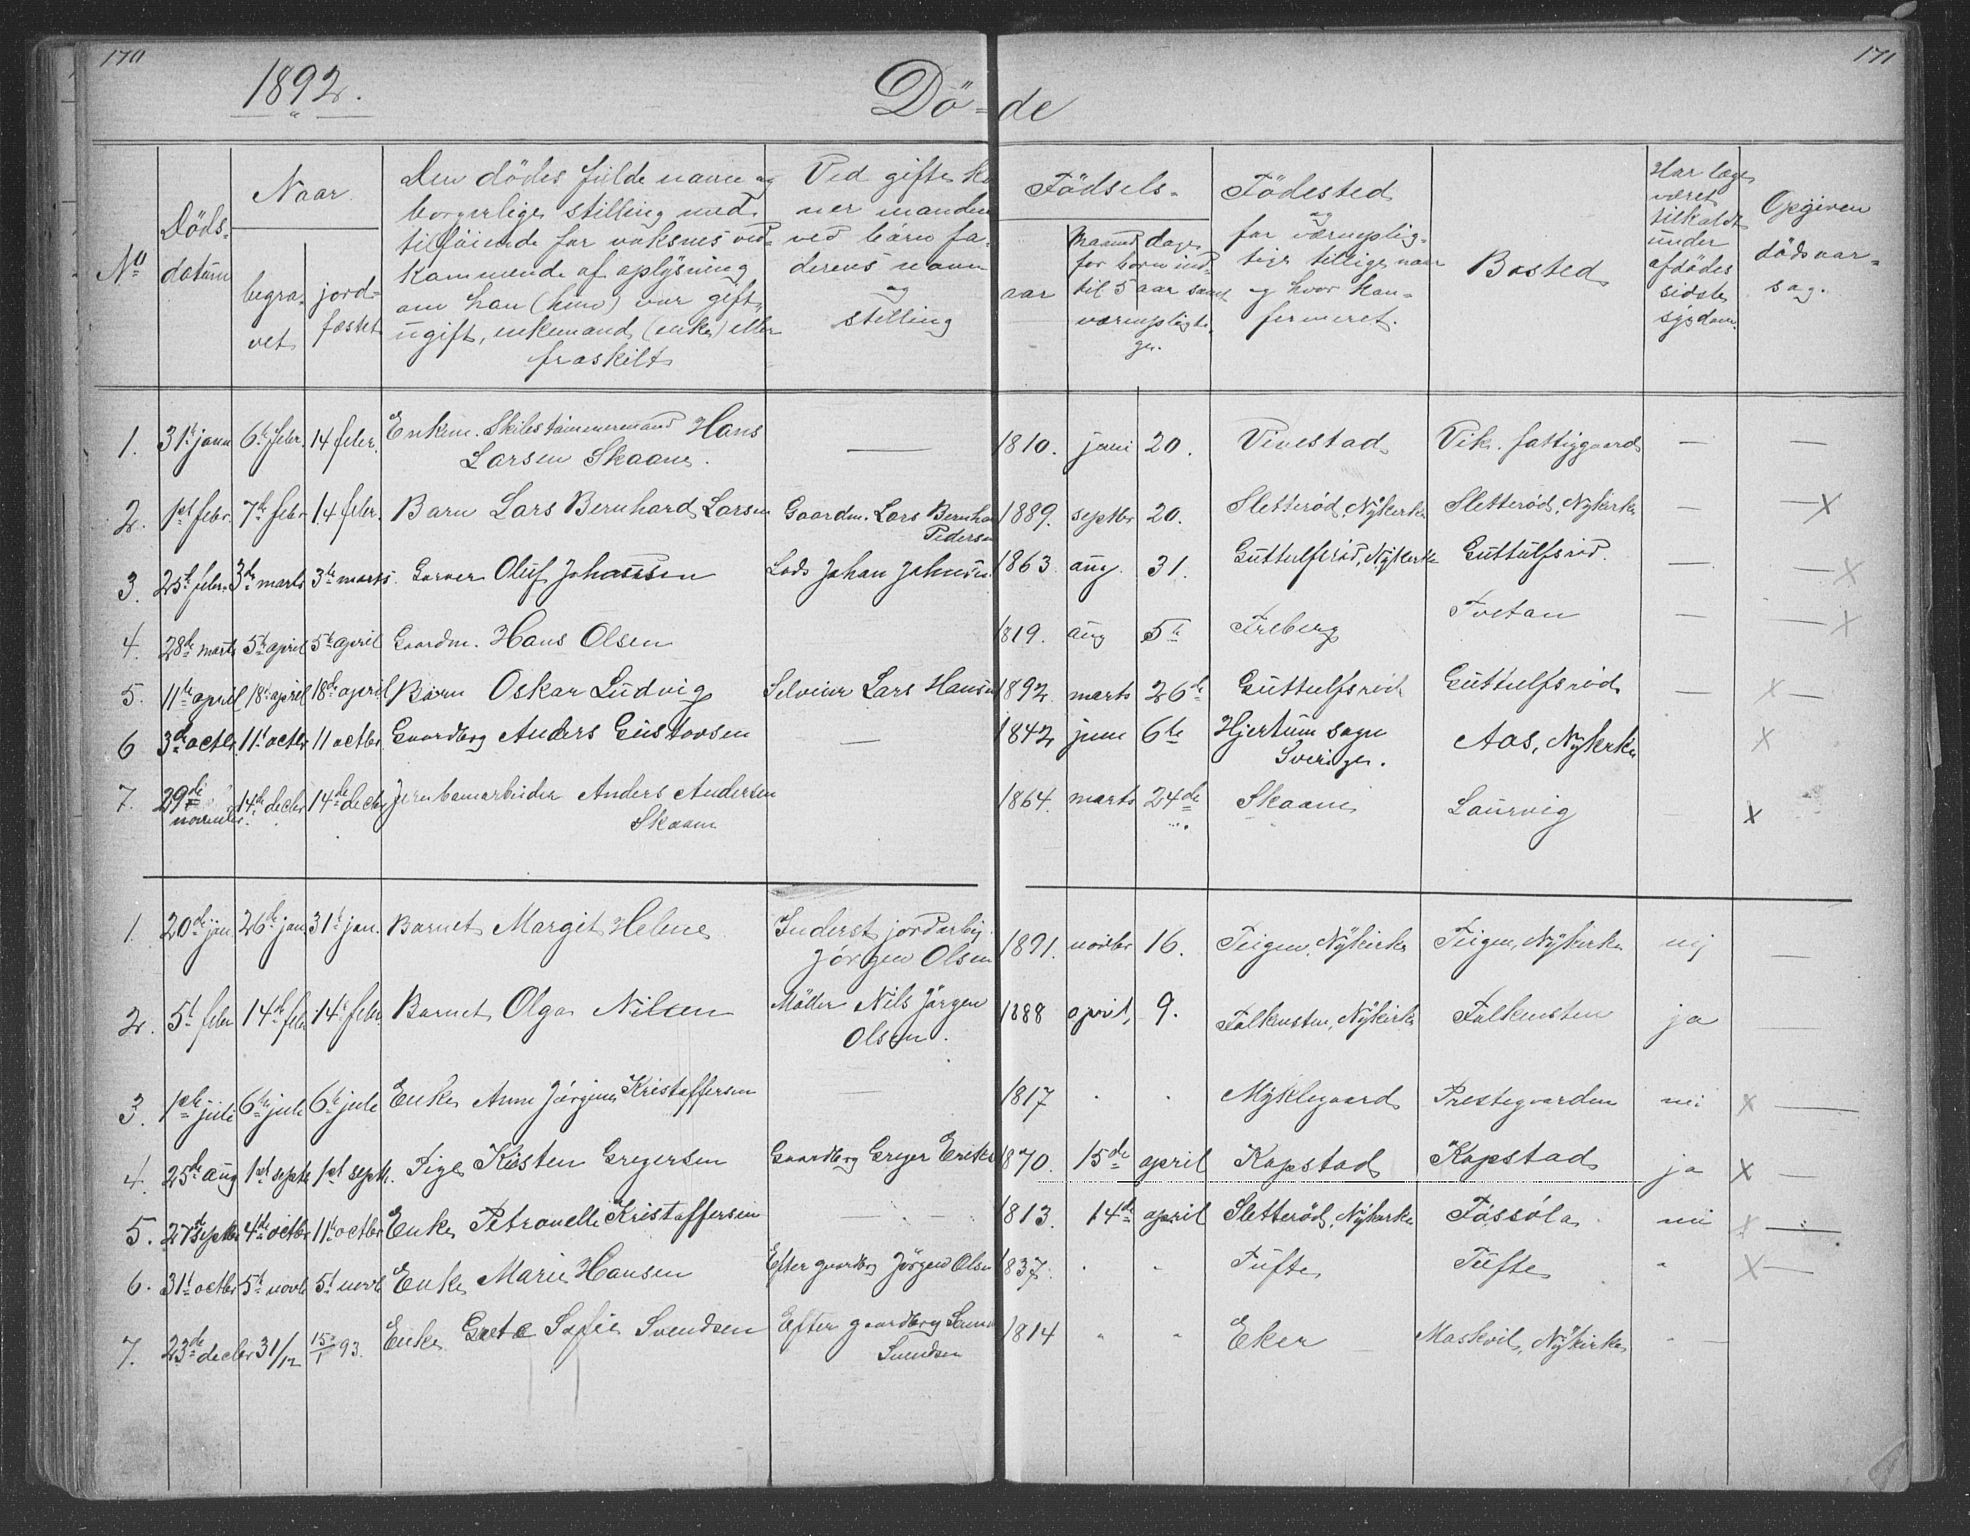 170
171
1892.
Dö-de
No
Döds-
datum
Naar
begra-
vet
jord-
fæstet
Den dödes fulde navn og
borgerlige stilling med
tilföiende for voksnes ved-
kommende af oplysning
om han (hun) var gift,
ugift, enkemand, (enke) eller
fraskilt
Ved gifte ko
ner manden
ved börn fa-
derens navn
og
stilling
Födsels-
aar
maaned dage
for börn ind-
til 5 aar samt
værnepligti-
ge.
Födested
og
for værneplig-
tige tillige naar
og hvor kon-
firmeret.
Bosted
Har læge
været
tilkaldt
under
afdödes
sidste
sygdom.
Opgiven
dödsaar-
sag.
1. 31te janu 6te febr. 14 febr. Enkem. Skibstömmermand Hans Larsen Skaane. — 1810. juni 20. Vivestad Vik. fattiggaard — —
2. 1st febr. 7de febr 14 febr. Barn Lars Bernhard Larsen Gaardm. Lars Bernha Pedersen 1889. septbr 20. Sletteröd, Nykirke Sletteröd, Nykirke — — X
3. 25te febr. 3de marts 3de marts. Garver Oluf Johansen Lods Johan Johnsen 1863 aug. 31. Guttulfsröd, Nykirke Guttulfsröd. — — X
4. 28de marts 5te april 5te april Gaardm. Hans Olsen 1819. aug 5te Freberg Tvetan — — X
5. 11te april 18de april 18de april Barn Oskar Ludvig Selveier Lars Hansen 1892 marts 26de Guttulfsröd Guttulfsröd — X —
6 3de octbr 11te octbr 11 octbr Gaardbrg Anders Gustavsen — 1842 juni 6te Hjertum sogn Sverige. Aas, Nykirke X
7. 29de novembr 14de decbr 14de decbr Jernbanarbeider Anders Andersen Skaane 1864. marts 24de Skaane Laurvig X
1. 20de jan 26de jan 31te jan. Barnet Margit Helene Inderst jordarb. Jörgen Olsen 1891. novbr 16. Teigen, Nykirke Teigen, Nykirke nej —
2. 5te febr 14de feb 14de febr. Barnet Olga Nilsen Möller Nils Jörgen Olsen. 1888 april, 9. Falkensten, Nykirke Falkensten ja
3. 1ste juli 6te juli 6te july Enke Anne Jörgine Kristoffersen — 1817 . . Myklegaard Prestegaarden nei X —
4. 25de aug 1st septb 1st septb. Pige Kirsten Gregersen Gaardbrg Greger Eriks 1870. 15de april Kopstad Kopstad ja X —
5. 27de septbr 4de octbr 11te octbr Enke Petronelle Kristoffersen — 1813. 14de april Sletteröd, Nykirke Fossöla nei X —
6. 31te octbr 5te novb 5te novb Enke Marie Hansen Efter gaardbrg Jörgen Olsen 1837. . . Tufte Tufte " X —
7. 23de decbr 31/12 15/1 93. Enke Grete Sofie Svendsen Efter gaardbrg Svendsen 1814 " " Eker Maskvil, Nykirke " —